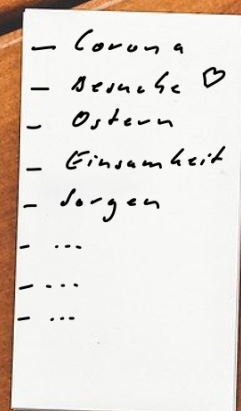 - Corona
- Besuche ♡
- Ostern
- Einsamkeit
- Sorgen
- ...
- ...
- ...